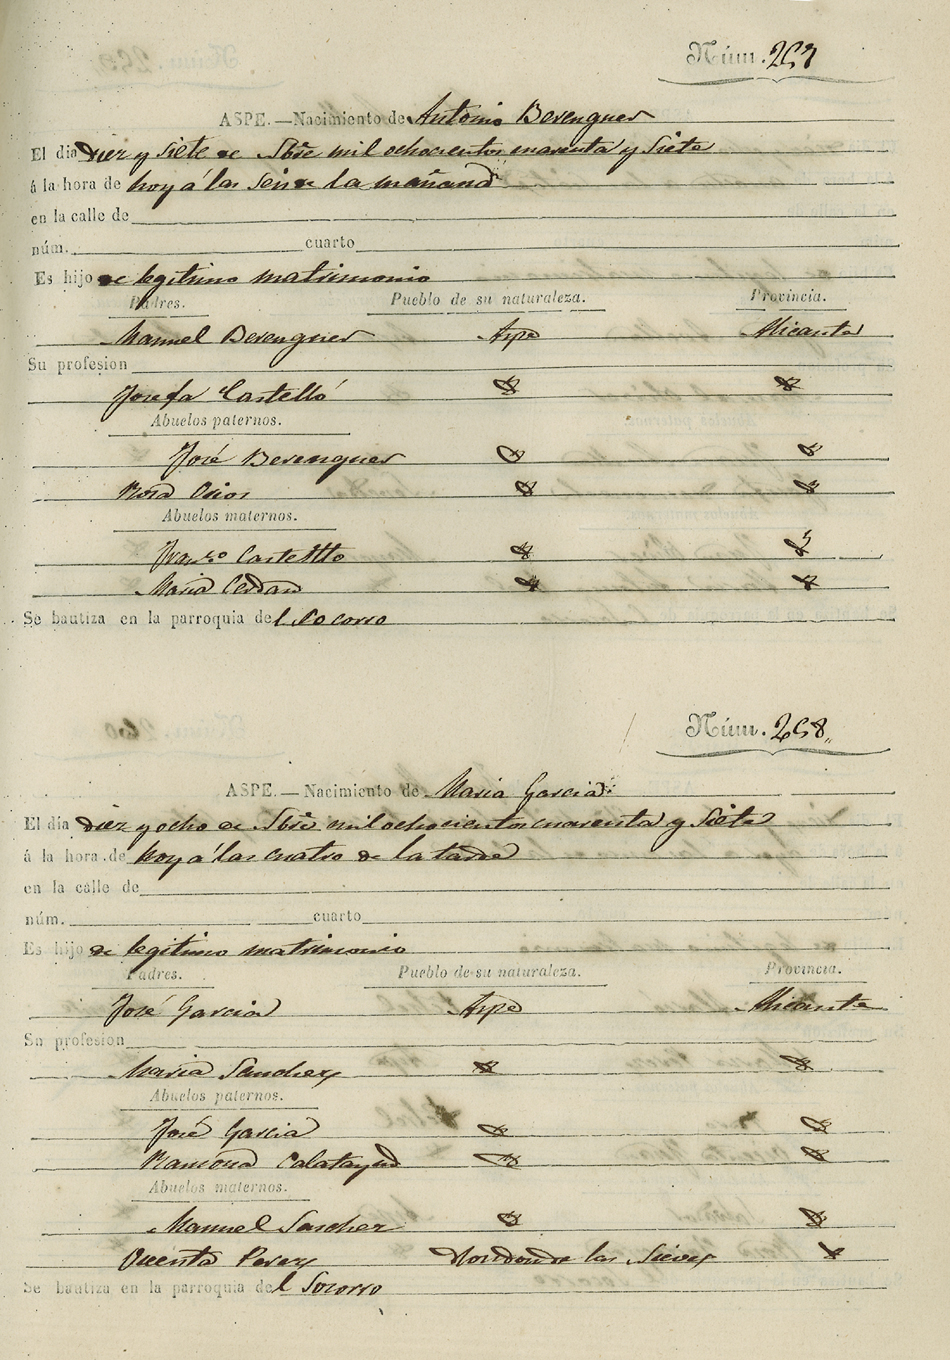 Núm. 257
ASPE.—Nacimiento de Antonio Berenguer
El dia diez y siete de Sbre mil ochocientos cuarenta y siete
á la hora de hoy á las seis de la mañana
en la calle de
núm. cuarto
Es hijo de legitimo matrimonio
Padres. Pueblo de su naturaleza. Provincia.
Manuel Berenguer Aspe Alicante
Su profesion
Josefa Castelló
Abuelos paternos.
José Berenguer
Rosa
Abuelos maternos.
Franco Castello
Maria Cerdan
Se bautiza en la parroquia del Socorro
Núm. 258
ASPE.—Nacimiento de Maria Garcia
El dia diez y ocho de Sbre mil ochocientos cuarenta y siete
á la hora de hoy á las cuatro de la tarde
en la calle de
núm. cuarto
Es hijo de legitimo matrimonio
Padres. Pueblo de su naturaleza. Provincia.
José Garcia Aspe Alicante
Su profesion
Maria Sanchez
Abuelos paternos.
José Garcia
Ramona Calatayud
Abuelos maternos.
Manuel Sanchez
Vicenta Perez Hondon de las Nieves
Se bautiza en la parroquia del Socorro